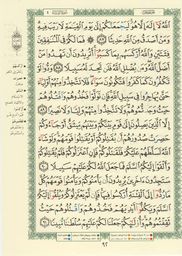 اللَّهُ لَا إِلَٰهَ إِلَّا هُوَ لَيَجْمَعَنَّكُمْ إِلَىٰ يَوْمِ الْقِيَامَةِ لَا رَيْبَ فِيهِ
وَمَنْ أَصْدَقُ مِنَ اللَّهِ حَدِيثًا ۞ فَمَا لَكُمْ فِي الْمُنَافِقِينَ
فِئَتَيْنِ وَاللَّهُ أَرْكَسَهُم بِمَا كَسَبُوا أَتُرِيدُونَ أَن تَهْدُوا مَنْ
أَضَلَّ اللَّهُ وَمَن يُضْلِلِ اللَّهُ فَلَن تَجِدَ لَهُ سَبِيلًا وَدُّوا لَوْ
تَكْفُرُونَ كَمَا كَفَرُوا فَتَكُونُونَ سَوَاءً فَلَا تَتَّخِذُوا مِنْهُمْ أَوْلِيَاءَ
حَتَّىٰ يُهَاجِرُوا فِي سَبِيلِ اللَّهِ فَإِن تَوَلَّوْا فَخُذُوهُمْ وَاقْتُلُوهُمْ
حَيْثُ وَجَدتُّمُوهُمْ وَلَا تَتَّخِذُوا مِنْهُمْ وَلِيًّا وَلَا نَصِيرًا
إِلَّا الَّذِينَ يَصِلُونَ إِلَىٰ قَوْمٍ بَيْنَكُمْ وَبَيْنَهُم مِّيثَاقٌ أَوْ جَاءُوكُمْ
حَصِرَتْ صُدُورُهُمْ أَن يُقَاتِلُوكُمْ أَوْ يُقَاتِلُوا قَوْمَهُمْ وَلَوْ شَاءَ
اللَّهُ لَسَلَّطَهُمْ عَلَيْكُمْ فَلَقَاتَلُوكُمْ فَإِنِ اعْتَزَلُوكُمْ فَلَمْ يُقَاتِلُوكُمْ
وَأَلْقَوْا إِلَيْكُمُ السَّلَمَ فَمَا جَعَلَ اللَّهُ لَكُمْ عَلَيْهِمْ سَبِيلًا
سَتَجِدُونَ آخَرِينَ يُرِيدُونَ أَن يَأْمَنُوكُمْ وَيَأْمَنُوا قَوْمَهُمْ كُلَّ
مَا رُدُّوا إِلَى الْفِتْنَةِ أُرْكِسُوا فِيهَا فَإِن لَّمْ يَعْتَزِلُوكُمْ وَيُلْقُوا إِلَيْكُمُ
السَّلَمَ وَيَكُفُّوا أَيْدِيَهُمْ فَخُذُوهُمْ وَاقْتُلُوهُمْ حَيْثُ
ثَقِفْتُمُوهُمْ وَأُولَٰئِكُمْ جَعَلْنَا لَكُمْ عَلَيْهِمْ سُلْطَانًا مُّبِينًا
٩٢